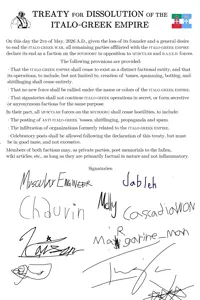 TREATY FOR DISSOLUTION OF THE
ITALO-GREEK EMPIRE
On this day the 2nd of May, 2026 A.D., given the loss of its founder and a general desire
to end the ITALO-GREEK EMPIRE, all remaining parties affiliated with the ITALO-GREEK EMPIRE
declare its end as a faction on the
The following provisions are provided:
· That the ITALO-GREEK EMPIRE shall cease to exist as a distinct factional entity, and that
its operations, to include, but not limited to, creation of
shitflinging shall cease entirely.
· That no new force shall be rallied under the name or colors of the ITALO-GREEK EMPIRE.
· That signatories shall not continue ITALO-GREEK EMPIRE operations in secret, or form secretive
or anonymous factions for the same purpose.
In their part, all
· The posting of ANTI-ITALO-GREEK
· The infiltration of organizations formerly related to the ITALO-GREEK EMPIRE.
· Celebratory posts shall be allowed following the declaration of this treaty, but must
be in good taste, and not excessive.
Members of both factions may, as private parties, post memorials to the fallen,
wiki articles, etc., as long as they are primarily factual in nature and not inflammatory.
Signatories:
Muscular Engineer
Jableh
Chauvin
Molly
CascadiaWON
MaRgarine_man